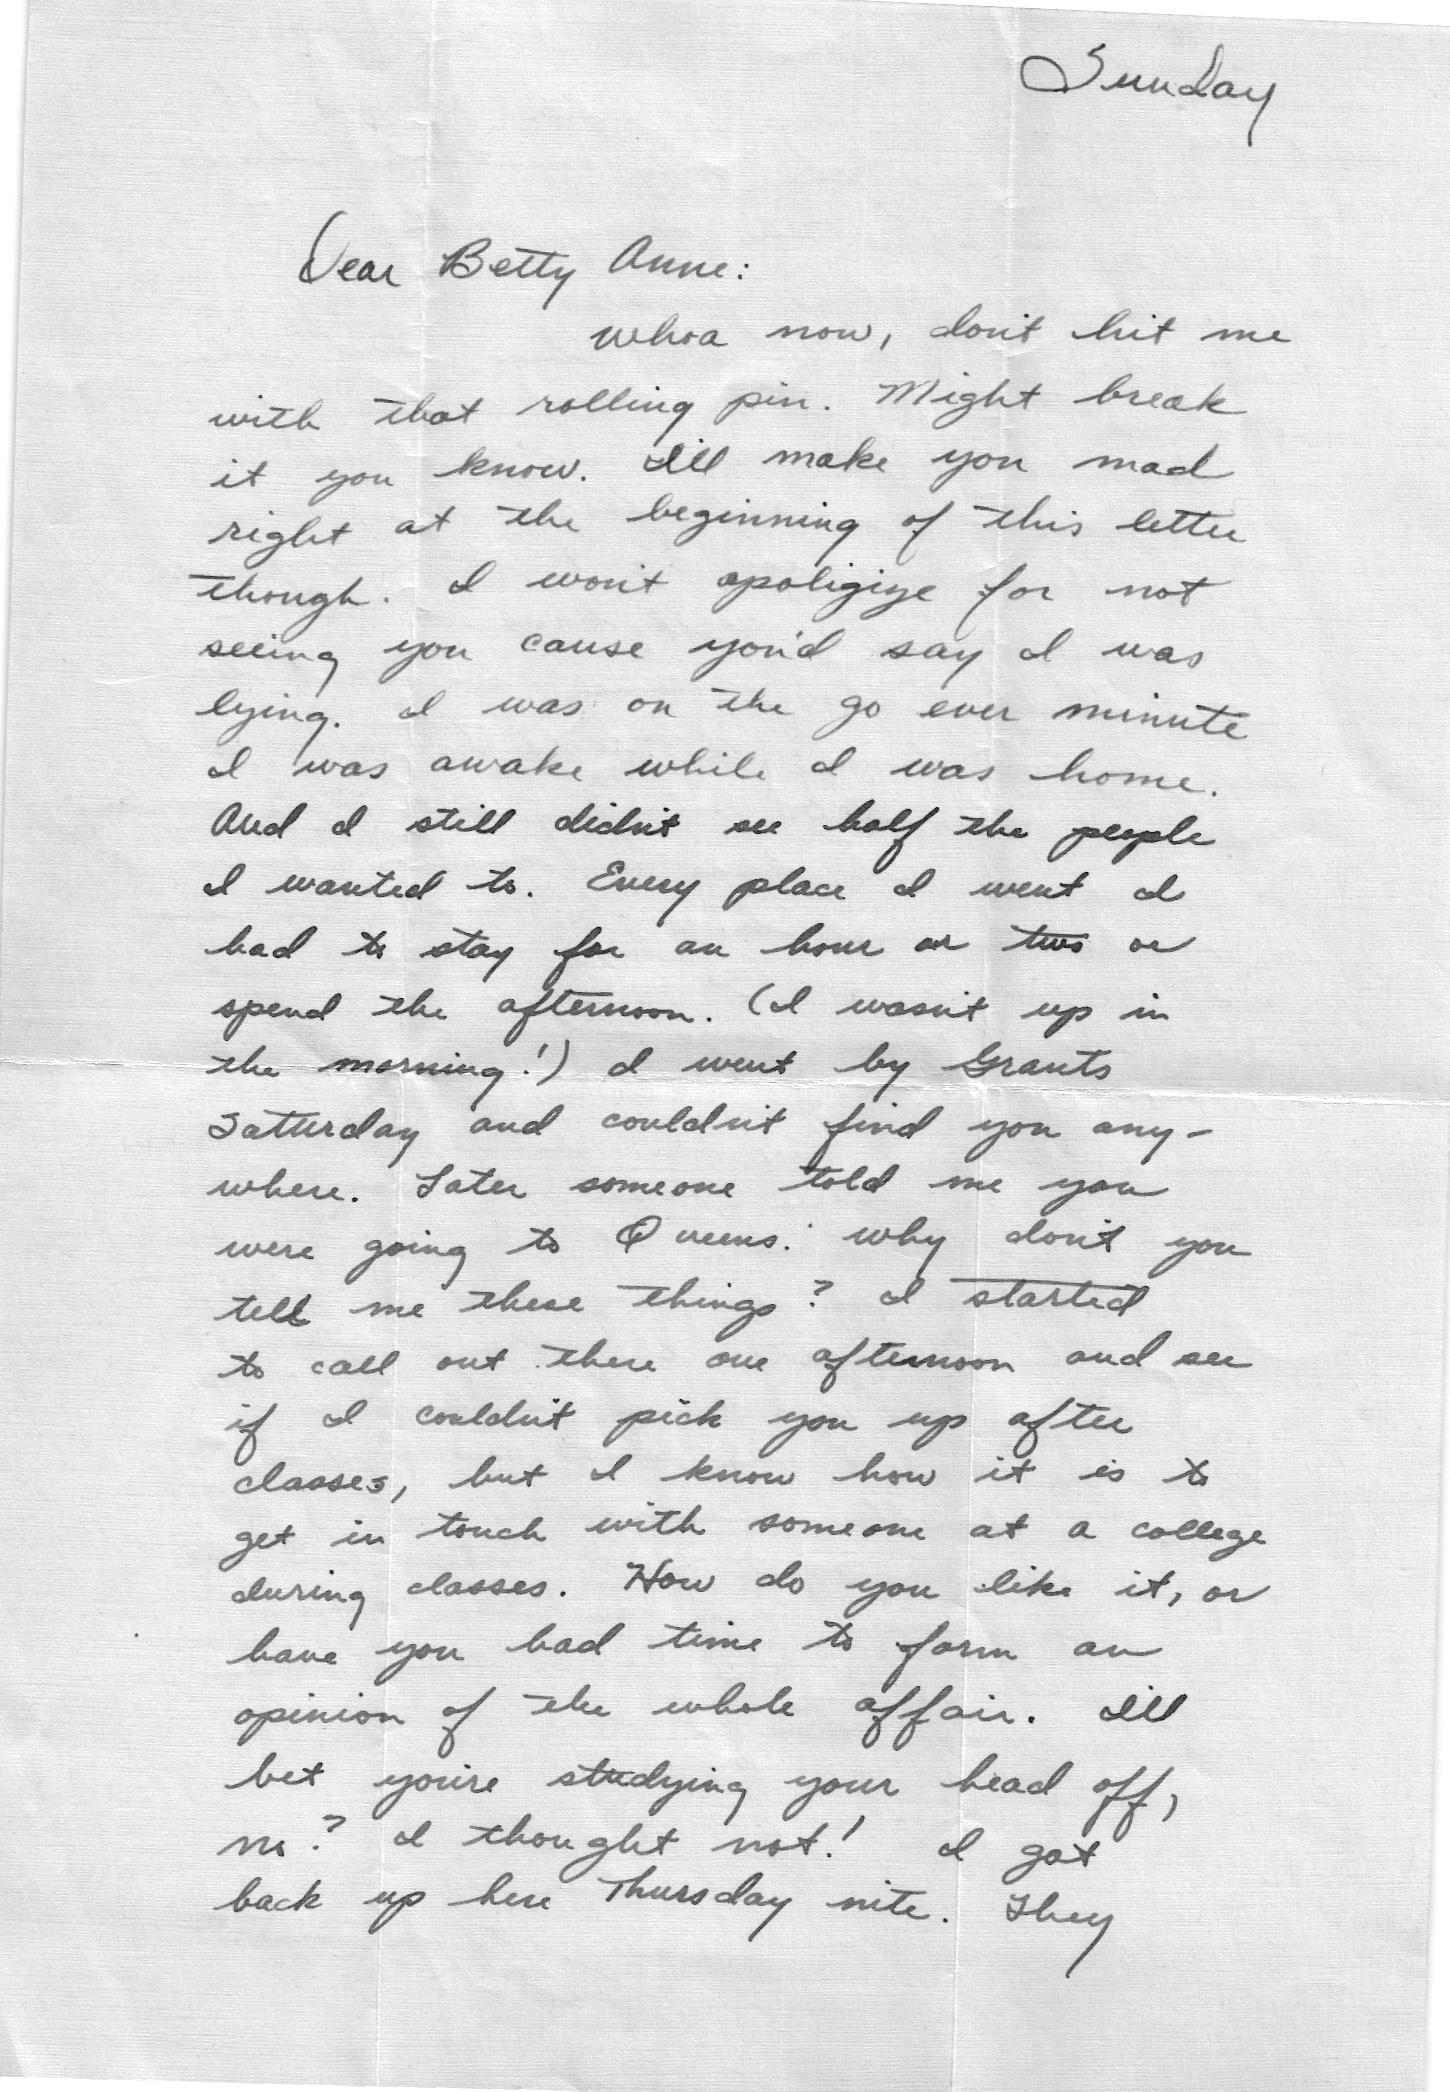 Sunday
Dear Betty Anne:
Whoa now, don't hit me
with that rolling pin. Might break
it you know. I'll make you mad
right at the beginning of this letter
though. I won't apoligize for not
seeing you cause you'd say I was
lying. I was on the go ever minute
I was awake while I was home.
And I still didn't see half the people
I wanted to. Every place I went I
had to stay for an hour or two or
spend the afternoon. (I wasn't up in
the morning!) I went by Grants
Saturday and couldn't find you any-
where. Later someone told me you
were going to Queens. Why don't you
tell me these things? I started
to call out there one afternoon and see
if I couldn't pick you up after
classes, but I know how it is to
get in touch with someone at a college
during classes. How do you like it, or
have you had time to form an
opinion of the whole affair. I'll
bet you're studying your head off,
no? I thought not! I got
back up here Thursday nite. They